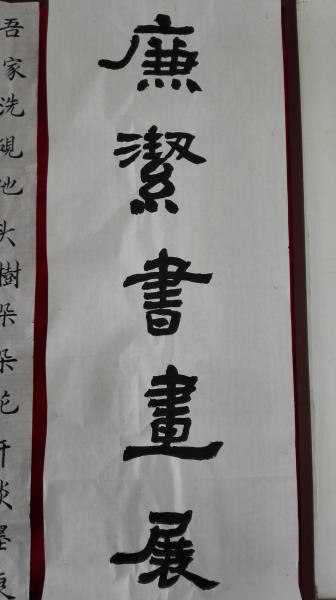 廉潔書畫展
吾家洗硯池头樹朵朵花开淡墨